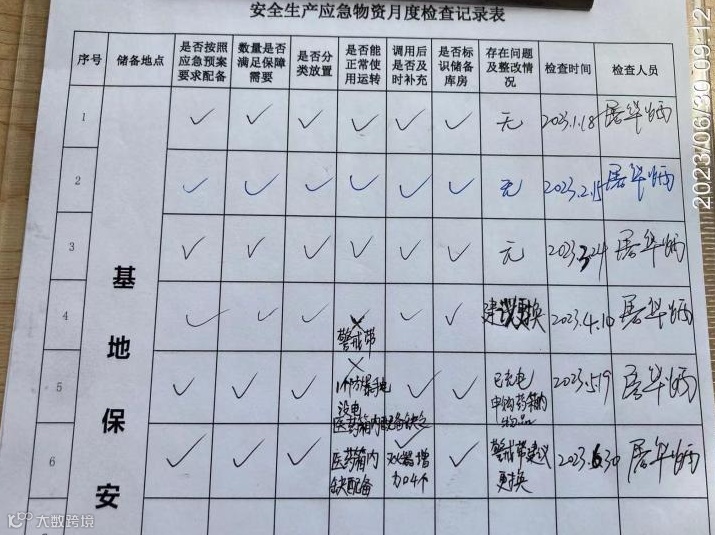 安全生产应急物资月度检查记录表
序号 储备地点 是否按照应急预案要求配备 数量是否满足保障需要 是否分类放置 是否能正常使用运转 调用后是否及时补充 是否标识储备库房 存在问题及整改情况 检查时间 检查人员
基地保安
1 ✓ ✓ ✓ ✓ ✓ ✓ 无 2023.1.18
2 ✓ ✓ ✓ ✓ ✓ ✓ 无 2023.2.15
3 ✓ ✓ ✓ ✓ ✓ ✓ 无 2023.3.24
4 ✓ ✓ ✓ ✗ 警戒带 ✓ ✓ 建议更换 2023.4.10
5 ✓ ✓ ✓ ✗ 1个防爆手电没电 医药箱内配备缺乏 ✓ ✓ 已充电 申购药箱内物品 2023.5.19
6 ✓ ✓ ✓ 医药箱内缺配备 ✓ 灭火器增加04个 ✓ 警戒带建议更换 2023.6.30
2023/06/30 09:12
公众号·大数跨境